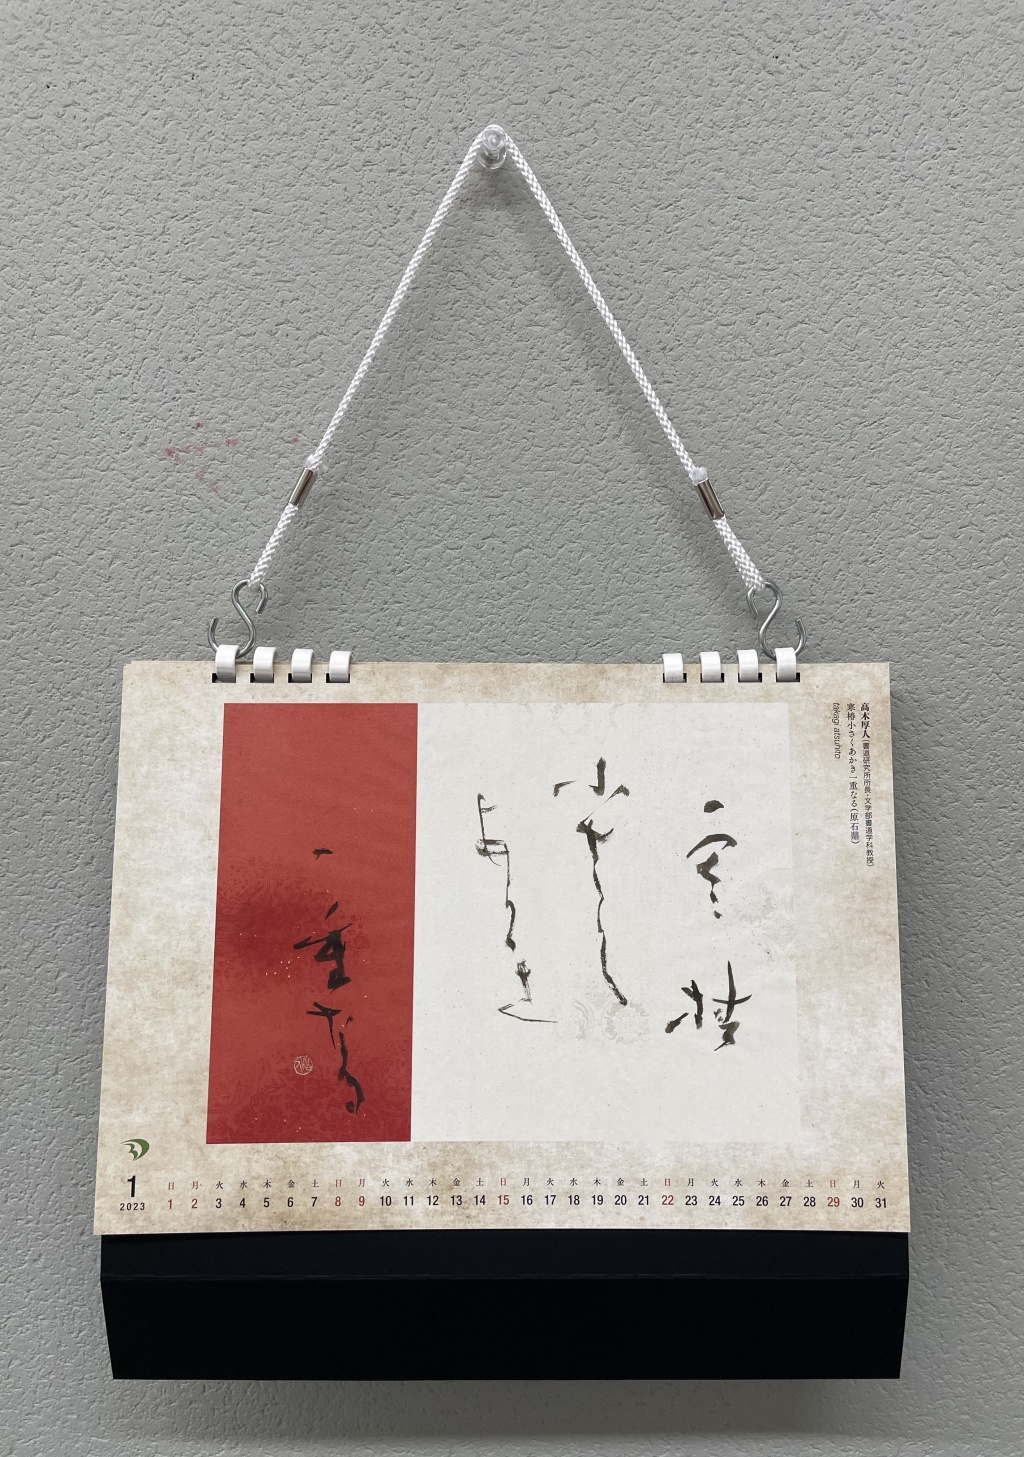 高木厚人(書道研究所所長・文学部書道学科教授)
寒椿小さくあかき一重なる(原石鼎)
takagi atsuhito
寒椿
小さく
あかき
一重
なる
1
2023
日 月 火 水 木 金 土 日 月 火 水 木 金 土 日 月 火 水 木 金 土 日 月 火 水 木 金 土 日 月 火
1 2 3 4 5 6 7 8 9 10 11 12 13 14 15 16 17 18 19 20 21 22 23 24 25 26 27 28 29 30 31